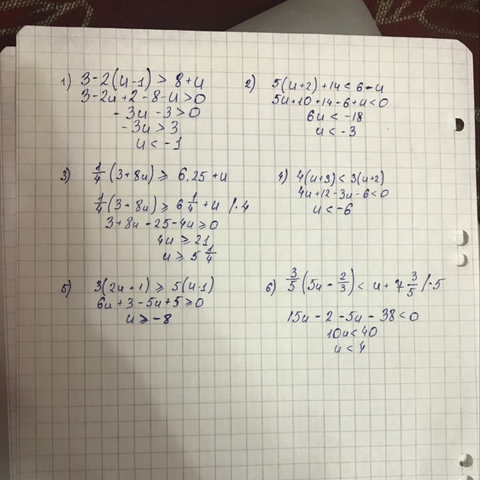 1) 3-2(u-1) > 8+u
3-2u+2-8-u>0
-3u-3>0
-3u>3
u<-1
2) 5(u+2)+14<6-u
5u+10+14-6+u<0
6u<-18
u<-3
3) 1/4 (3+8u) ⩾ 6,25+u
1/4 (3+8u) ⩾ 6 1/4 + u /·4
3+8u-25-4u⩾0
4u⩾21
u⩾5 1/4
4) 4(u+3)<3(u+2)
4u+12-3u-6<0
u<-6
5) 3(2u+1)⩾5(u-1)
6u+3-5u+5⩾0
u⩾-8
6) 3/5 (5u - 2/3) < u+7 3/5 /·5
15u-2-5u-38<0
10u<40
u<4